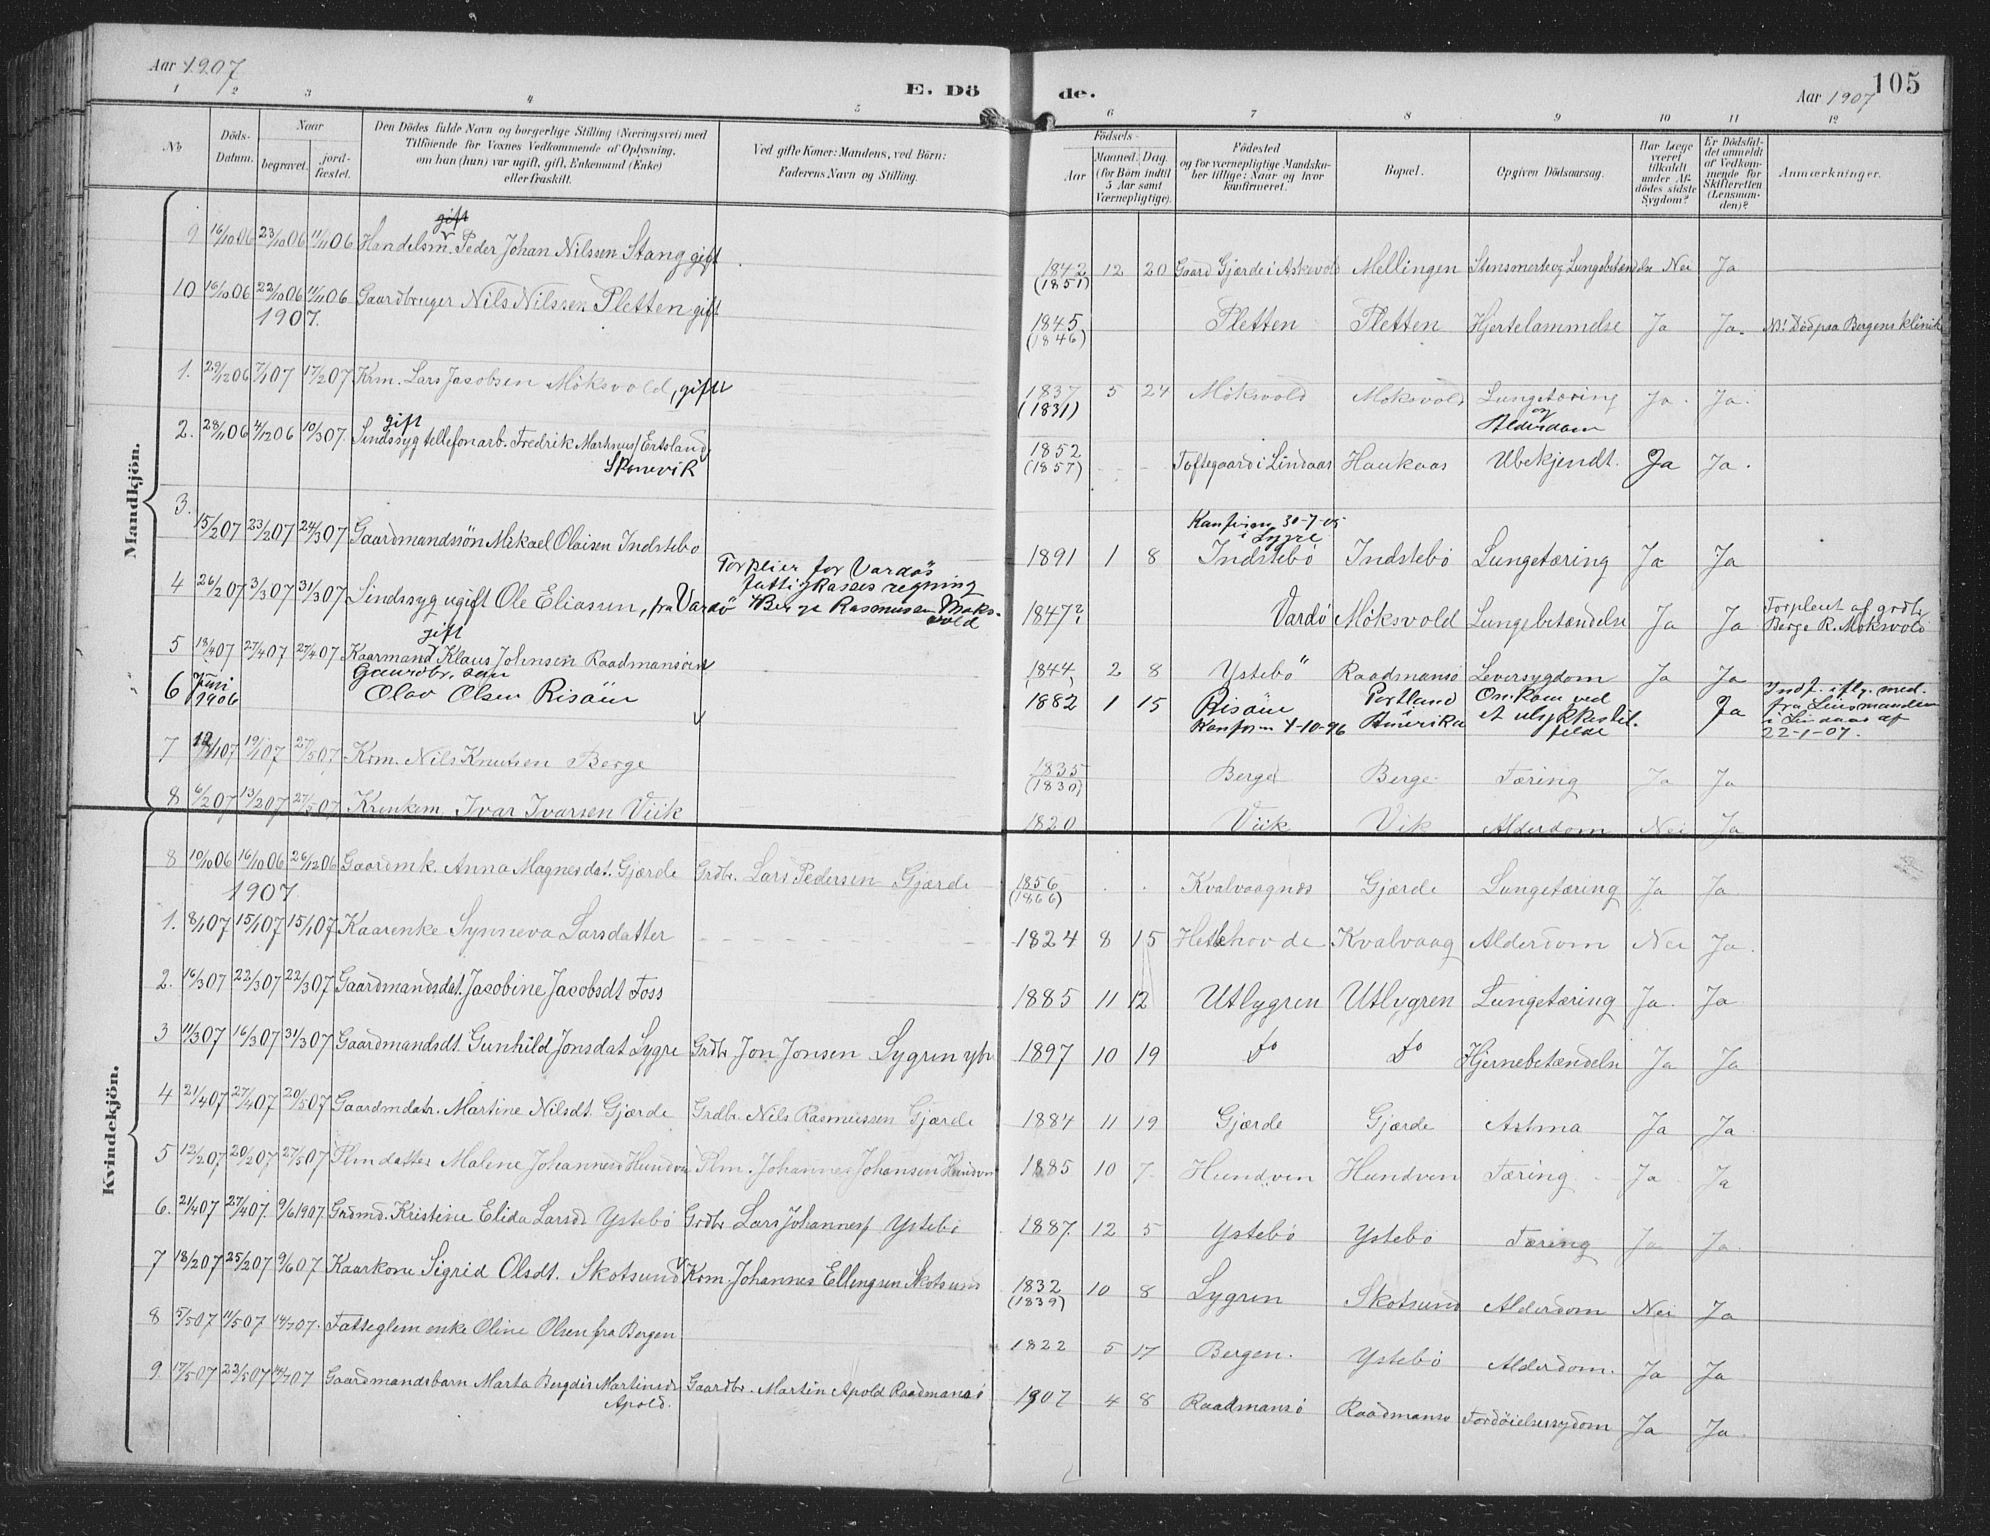 Aar 1907
E. Dö de.
Aar 1907
105
1 2 3 4 5 6 7 8 9 10 11 12
No
Döds-Datum.
Naar
begravet.
jord-fæstet.
Den Dödes fulde Navn og borgerlige Stilling (Næringsvei) med
Tilföiende for Voxnes Vedkommende af Oplysning,
om han (hun) var ugift, gift, Enkemand (Enke)
eller fraskilt.
Ved gifte Koner: Mandens, ved Börn:
Faderens Navn og Stilling.
Födsels-
Aar
Maaned. Dag.
(for Börn indtil
5 Aar samt
Værnepligtige).
Födested
og for værnepligtige Mandska-
ber tillige: Naar og hvor
konfirmeret.
Bopæl.
Opgiven Dödsaarsag.
Har Læge
været
tilkaldt
under Af-
dödes sidste
Sygdom?
Er Dödsfal-
det anmeldt
af Vedkom-
mende for
Skifteretten
(Lensman-
den)?
Anmærkninger.
Mandkjön.
gift
9 16/10 06 23/10 06 11/11 06 Handelsm. Peder Johan Nilssen Stang gift 1842 (1851) 12 20 Gaard Gjerde i Askvold Mellingen Stensmerte og Lungebetændelse Nei Ja
10 16/10 06 22/10 06 11/11 06 Gaardbruger Nils Nilssen Pletten gift 1845 (1846) Pletten Pletten Hjertelammelse Ja Ja. NB! Död paa Bergens klinik
1907.
1. 29/12 06 7/1 07 17/2 07 Krm. Lars Jacobsen Möksvold, gift 1837 (1831) 5 24 Möksvold Möksvold Lungetæring og Alderdom Ja. Ja.
gift
2. 28/11 06 4/12 06 10/3 07. Sindssyg tellefonarb. Fredrik Martinus Ertsland, Skonevik 1852 (1857) Toftegaard i Lindaas Haukaas Ubekjendt. Ja Ja.
3. 15/2 07 23/2 07 24/3 07 Gaardmandssön Mikael Olaisen Indstebö 1891 1 8 Konfirm 30-7-05 i Lygre Indstebö Indstebö Lungetæring Ja Ja
4 26/2 07 3/3 07 31/3 07 Sindssyg ugift Ole Eliassen, fra Vardö Forpleiet for Vardös fattigkasses regning Berge Rasmussen Moksvold 1847? Vardö Möksvold Lungebetændelse Ja Ja Forpleiet af grdbr. Berge R. Moksvold
gift
5 18/4 07 27/4 07 27/4 07 Kaarmand Klaus Johnsen Raadmansöen 1844 2 8 Ystebö Raadmansö Leversygdom Ja Ja
6 Juni 1906 Gaardbr. søn Olav Olsen Risöen 1882 1 15 Risöen Konfirm 4-10-96 Portland i Amerika Omkom ved et ulykkestilfelde Ja Indf. iflg. med. fra Lensmanden i Lindaas af 22-1-07.
7 12/1 07 19/1 07 27/5 07 Krm. Nils Knutsen Berge 1835 (1830) Berge Berge Tæring Ja Ja
8 6/2 07 13/2 07 27/5 07 Krenkem. Ivar Ivarsen Viik 1820 Viik Vik Alderdom Nei Ja
Kvindekjön.
8 10/10 06 16/10 06 26/12 06 Gaardmk. Anna Magnesdat. Gjærde Grdbr. Lars Pedersen Gjærde 1856 (1866) Kvalvaagnes Gjærde Lungetæring Ja Ja
1907
1. 8/1 07 15/1 07 15/1 07 Kaarenke Synneva Larsdatter 1824 8 15 Hetlehovde Kvalvaag Alderdom Nei Ja.
2. 16/3 07 22/3 07 22/3 07 Gaardmandsdat. Jacobine Jacobsdt Foss 1885 11 12 Utlygren Utlygren Lungetæring Ja. Ja
3 11/3 07 16/3 07 31/3 07 Gaardmandsdt. Gunhild Jonsdat Lygre Grdbr Jon Jonsen Lygren ytr 1897 10 19 Do Do Hjernebetændelse Ja Ja
4 21/4 07 27/4 07 20/5 07 Gaardmdatr. Martine Nilsdt. Gjærde Grdbr. Nils Rasmussen Gjærde 1884 11 19 Gjærde Gjærde Astma Ja Ja
5 12/2 07 20/2 07 27/5 07 Plmdatter Malene Johannesd Hundve Plm. Johannes Johansen Hundven 1885 10 7 Hundven Hundven Tæring Ja Ja
6. 21/4 07 27/4 07. 9/6 1907 Grdmd. Kristine Elida Larsd Ystebö Grdbr Lars Johanness Ystebö 1887. 12 5 Ystebö Ystebö Tæring Ja Ja.
7 18/2 07 25/2 07 9/6 07 Kaarkone Sigrid Olsdt. Skotsund Krm. Johannes Ellingsen Skotsund 1832 (1839) 10 8 Lygren Skotsund Alderdom Nei Ja
8 5/5 07 11/5 07 14/7 07. Fatteglem enke Oline Olsen fra Bergen 1822 5 17 Bergen. Ystebö Alderdom. Ja Ja
9 17/5 07 23/5 07 14/7 07 Gaardmandsbarn Marta Bergdis Martinesd. Apold. Gaardbr. Martin Apold Raadmansö 1907 4 8 Raadmansö Raadmansö Fordöielsessygdom Ja Ja.